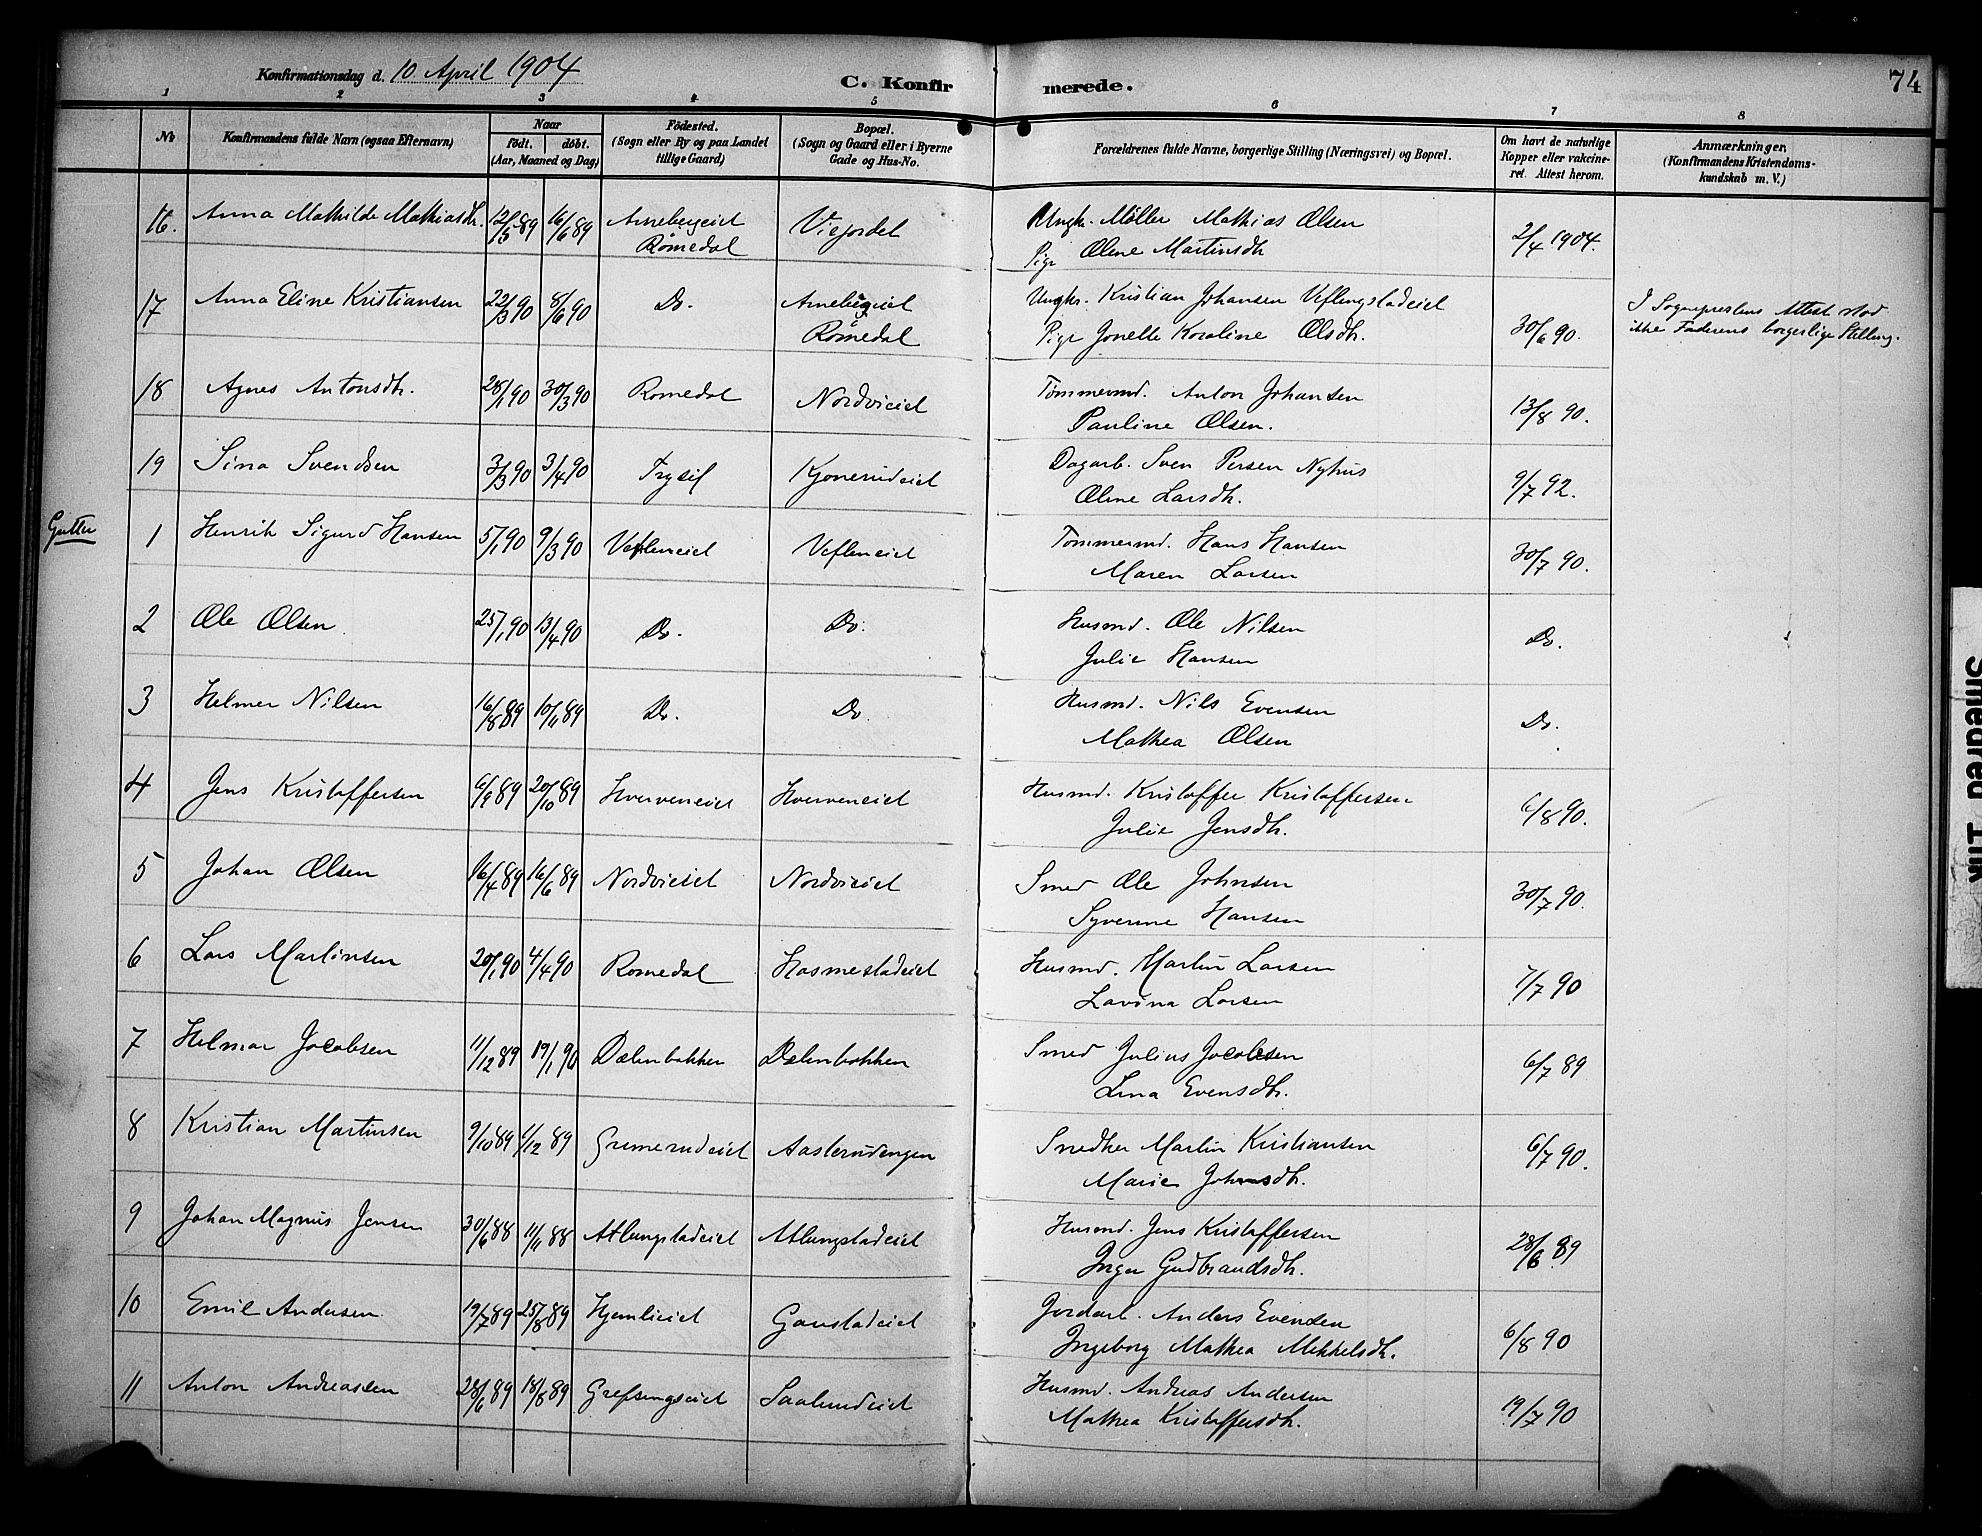 Konfirmationsdag d. 10 April 1904
C. Konfirmerede.
74
1 2 3 4 5 6 7 8
№
Konfirmandens fulde Navn (ogsaa Efternavn)
Naar
født. døbt.
(Aar, Maaned og Dag)
Fødested.
(Sogn eller By og paa Landet
tillige Gaard)
Bopæl.
(Sogn og Gaard eller i Byerne
Gade og Hus-No.
Forældrenes fulde Navne, borgerlige Stilling (Næringsvei) og Bopæl.
Om havt de naturlige
Kopper eller vakcine-
ret. Attest herom.
Anmærkninger.
(Konfirmandens Kristendoms-
kundskab m. V.)
16. Anna Mathilde Mathiasdh. 12/5 89 16/6 89 Arnebergeiet Viejordet Ungk. Møller Mathias Olsen 2/4 1904.
Romedal Pige Oline Martinsdh
17 Anna Eline Kristiansen 22/3 90 8/6 90 Do. Arnebergeiet Ungkr. Kristian Johansen Veflingstadeiet 30/6 90. I Sogneprestens Attest stod
Romedal Pige Jonette Karoline Olsdh. ikke Faderens borgerlige Stilling.
18 Agnes Antonsdh. 28/1 90 30/3 90 Romedal Nordvieiet Tømmermd. Anton Johansen 13/8 90.
Pauline Olsen.
19 Sina Svendsen 3/3 90 3/4 90 Trysil Kjonerudeiet Dagarb. Sven Persen Nyhus 9/7 92.
Oline Larsdh.
Gutter
1 Henrik Sigurd Hansen 5/1 90 9/3 90 Vefleneiet Vefleneiet Tømmermd. Hans Hansen 30/7 90.
Maren Larsen
2 Ole Olsen 25/1 90 13/4 90 Do. Do. Husmd. Ole Nilsen Do.
Julie Hansen
3 Helmer Nilsen 16/8 89 10/11 89 Do. Do. Husmd. Nils Evensen Do.
Mathea Olsen
4 Jens Kristoffersen 6/9 89 20/10 89 Hverveneiet Hverveneiet Husmd. Kristoffer Kristoffersen 6/8 90.
Julie Jensdh.
5 Johan Olsen 16/4 89 16/6 89 Nordvieiet Nordvieiet Smed Ole Johnsen 30/7 90.
Syverine Hansen
6 Lars Martinsen 20/1 90 4/4 90 Romedal Hosmestadeiet Husmd. Martin Larsen 7/7 90
Lavina Larsen
7 Helmar Jacobsen 11/12 89 19/1 90 Dælenbakken Dælenbakken Smed Julius Jacobsen 6/7 89
Lina Evensdh.
8 Kristian Martinsen 9/10 89 1/12 89 Gremerudeiet Aasterudengen Snedker Martin Kristiansen 6/7 90.
Marie Johnsdh.
9 Johan Magnus Jensen 30/6 88 11/11 88 Atlungstadeiet Atlungstadeiet Husmd. Jens Kristoffersen 28/6 89
Inger Gudbrandsdh.
10 Emil Andersen 19/7 89 25/8 89 Hjemlieiet Gaustadeiet Jordarb. Anders Evensen 6/8 90
Ingeborg Mathea Mikkelsdh.
11 Anton Andreassen 28/6 89 18/8 89 Grefsengseiet Saalundeiet Husmd. Andreas Andersen 19/7 90
Mathea Kristoffersdh.